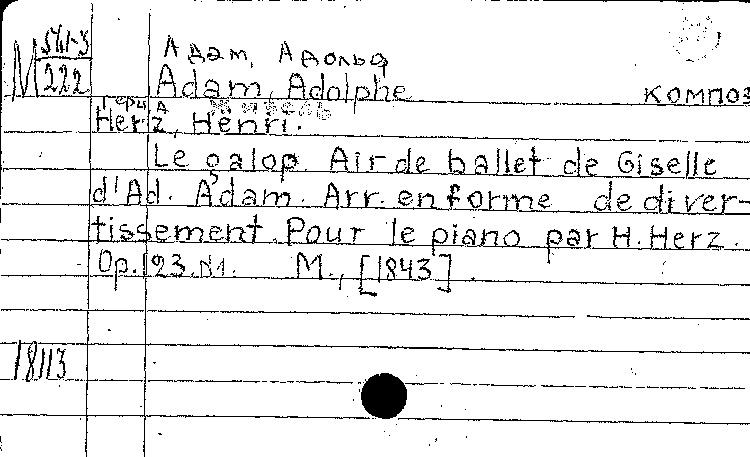 М 541-3
222
Адам, Адольф
Adam, Adolphe
композ
Герц А
Herz, Henri.
Le galop. Air de ballet de Giselle
d'Ad. Adam. Arr. en forme de diver-
tissement. Pour le piano par H. Herz.
Op. 123. N1. M., [1843].
18113